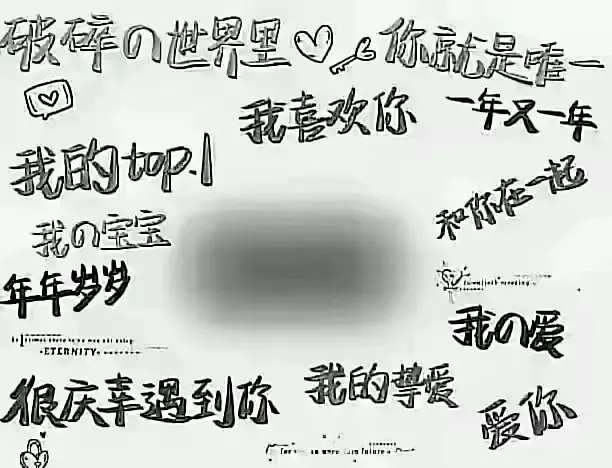 破碎の世界里
你就是唯一
我喜欢你
一年又一年
我的top.1
和你在一起
我の宝宝
年年岁岁
我の爱
ETERNITY
很庆幸遇到你
我的挚爱
爱你